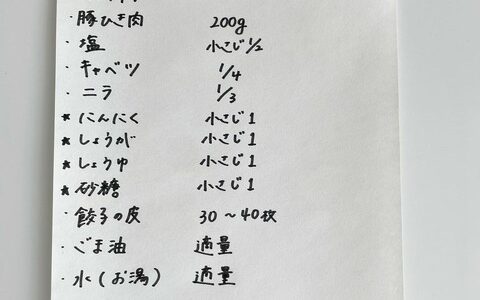 ・豚ひき肉 200g
・塩 小さじ1/2
・キャベツ 1/4
・ニラ 1/3
★にんにく 小さじ1
★しょうが 小さじ1
★しょうゆ 小さじ1
★砂糖 小さじ1
・餃子の皮 30〜40枚
・ごま油 適量
・水(お湯) 適量